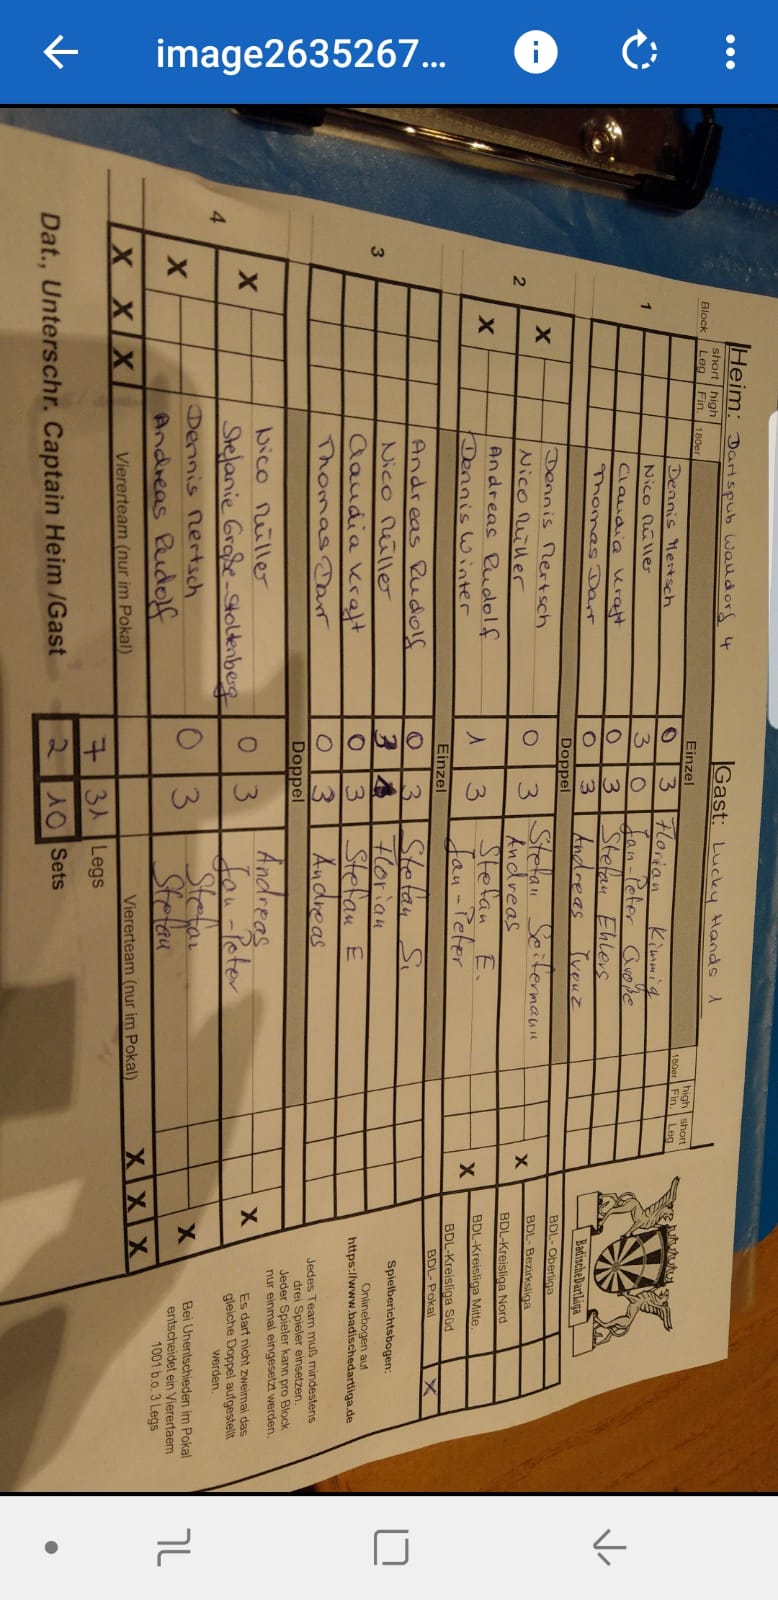 image2635267...
Heim: Dartspub Walldorf 4 Gast: Lucky Hands 1
Block short Leg high Fin. 180er Einzel 180er high Fin. short Leg
1 Dennis Mertsch 0 3 Florian Kimmig
Nico Müller 3 0 Jan-Peter Große
Claudia Kraft 0 3 Stefan Ehlers
Thomas Darr 0 3 Andreas
Doppel
2 X Dennis Mertsch 0 3 Stefan Seifermann X
Nico Müller Andreas
X Andreas Rudolf 1 3 Stefan E. X
Dennis Winter Jan-Peter
Einzel
3 Andreas Rudolf 0 3 Stefan S.
Nico Müller 3 Florian
Claudia Kraft 0 3 Stefan E
Thomas Darr 0 3 Andreas
Doppel
4 X Nico Müller 0 3 Andreas X
Stefanie Große-Stoltenberg Jan-Peter
X Dennis Mertsch 0 3 Stefan X
Andreas Rudolf Stefan
X X X Viererteam (nur im Pokal) Viererteam (nur im Pokal) X X X
7 31 Legs
Dat., Unterschr. Captain Heim /Gast 2 10 Sets
BadischeDartLiga
BDL- Oberliga
BDL- Bezirksliga
BDL-Kreisliga Nord
BDL-Kreisliga Mitte
BDL-Kreisliga Süd
BDL- Pokal X
Spielberichtsbogen:
Onlinebogen auf
https://www.badischedartliga.de
Jedes Team muß mindestens
drei Spieler einsetzen.
Jeder Spieler kann pro Block
nur einmal eingesetzt werden.
Es darf nicht zweimal das
gleiche Doppel aufgestellt
werden.
Bei Unentschieden im Pokal
entscheidet ein Vierertaem
1001 b.o. 3 Legs